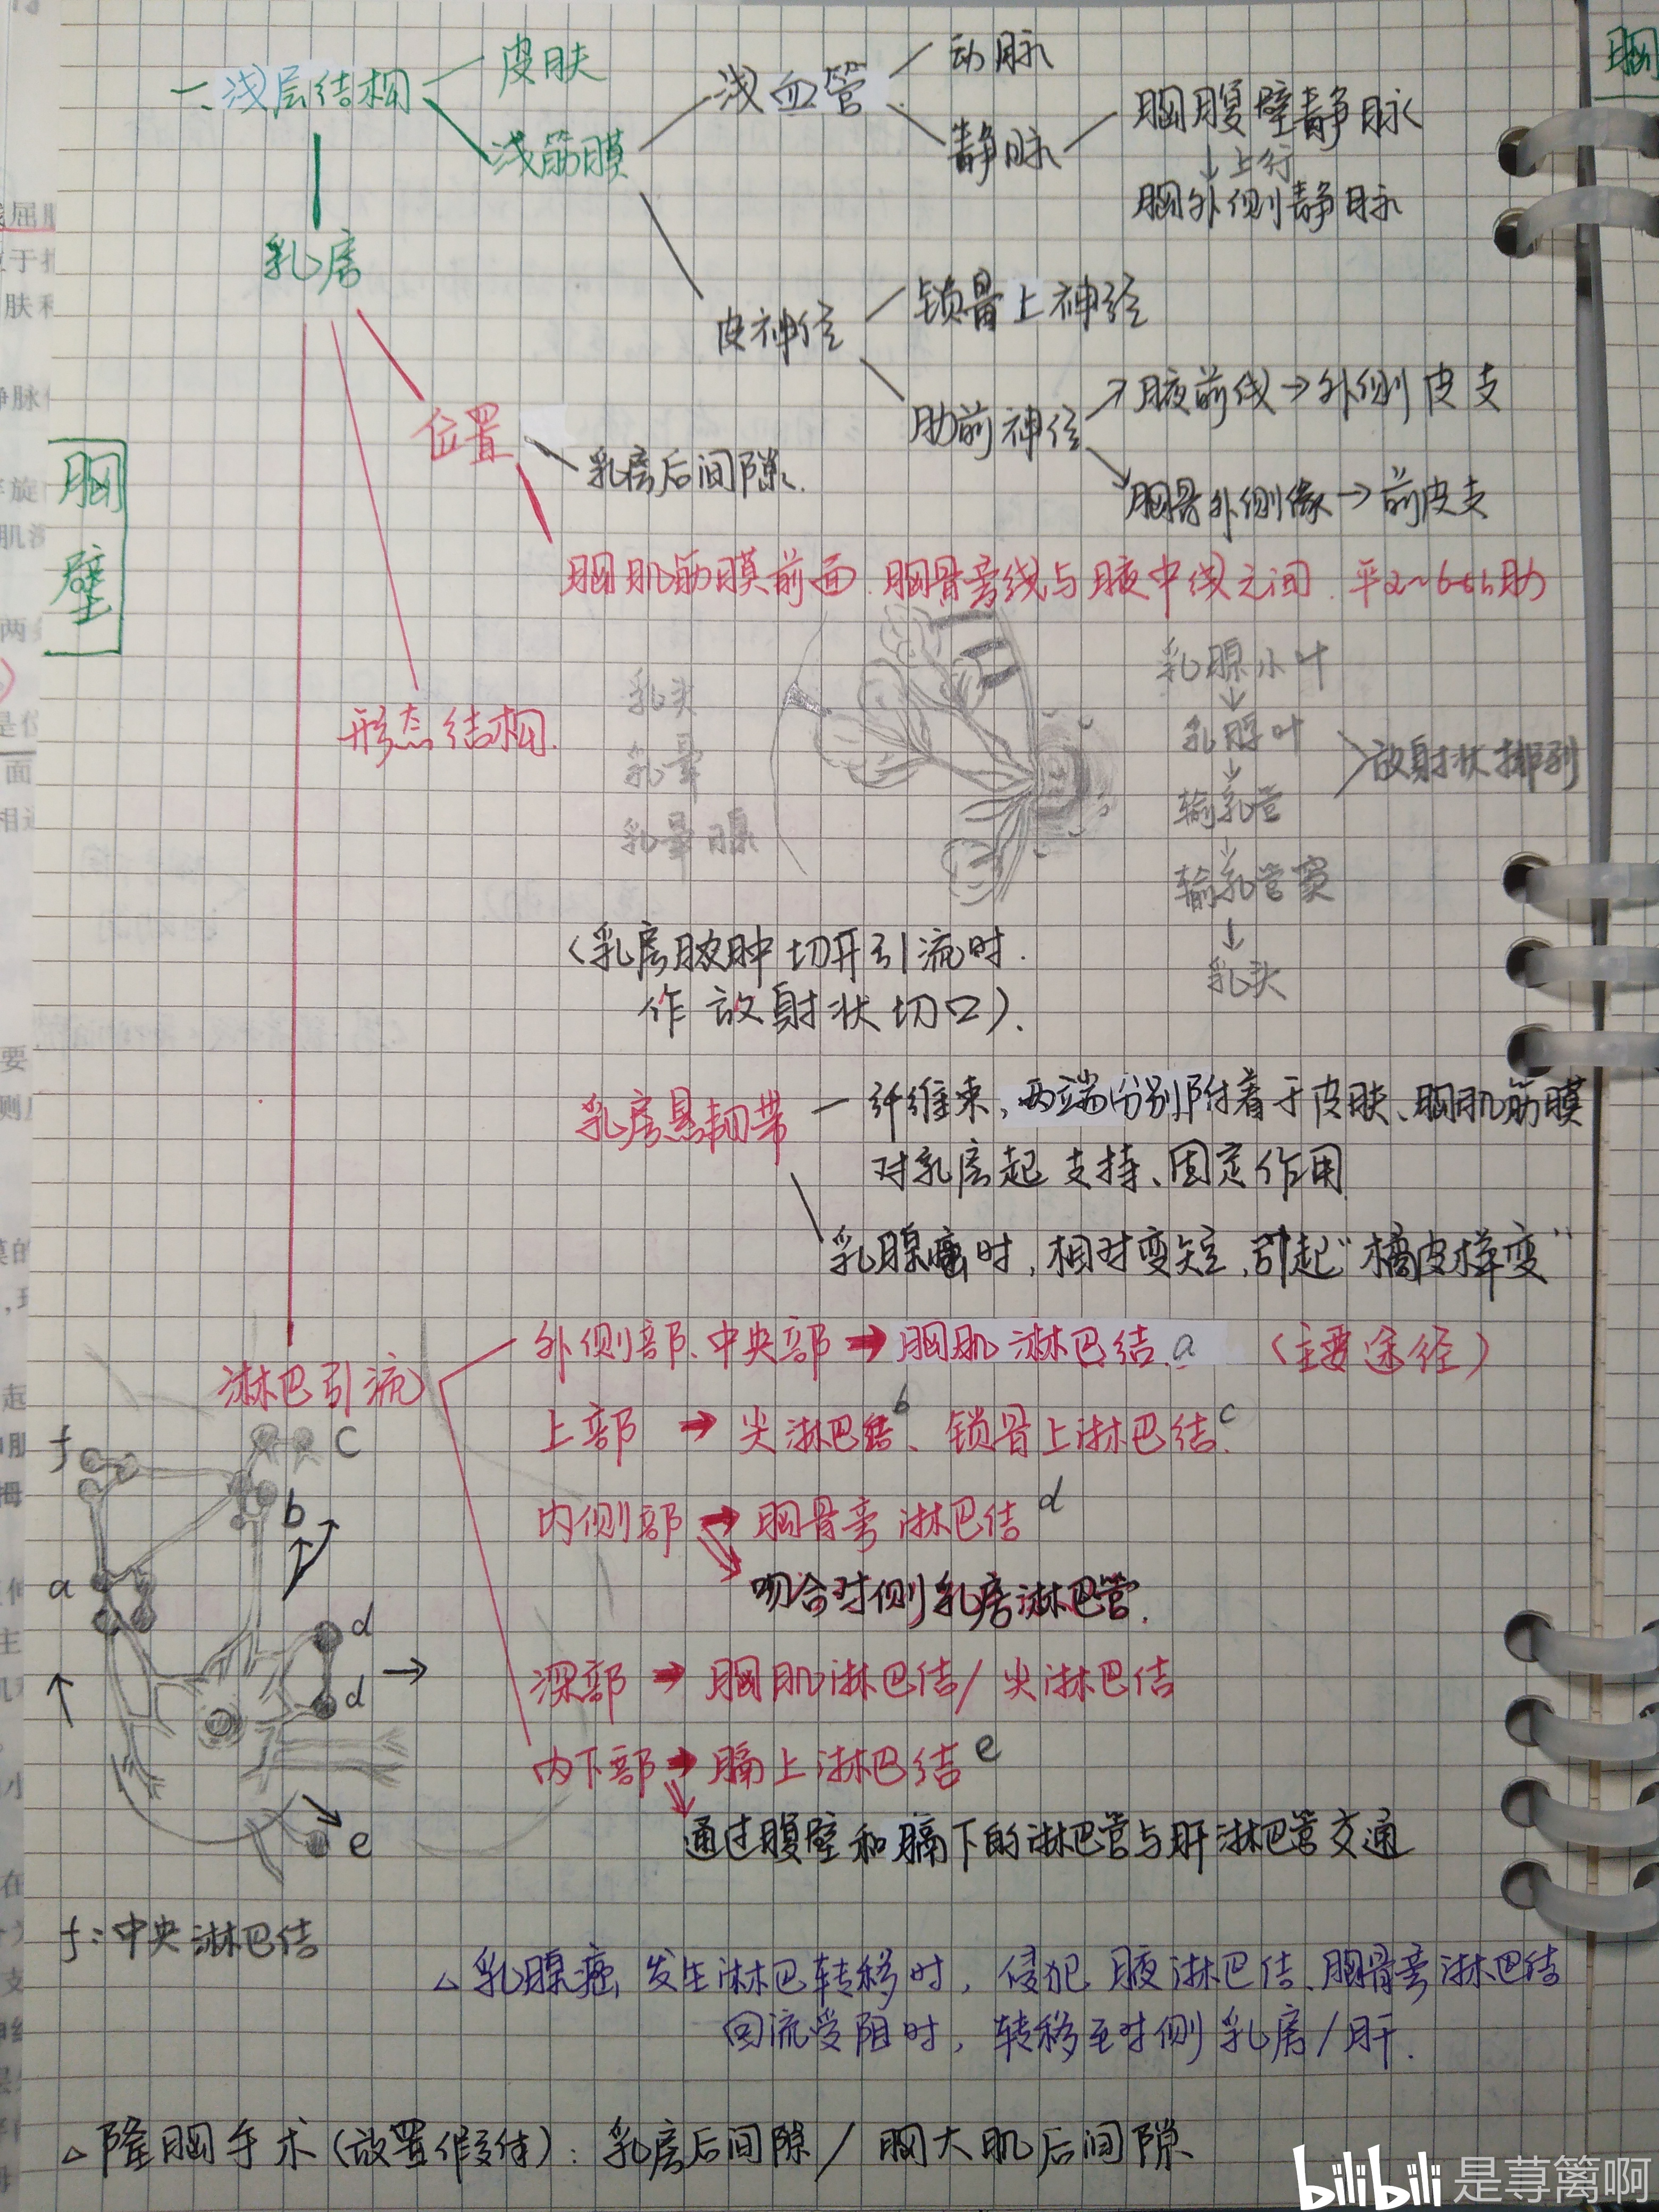 胸壁
一、浅层结构
皮肤
浅筋膜
浅血管
动脉
静脉
胸腹壁静脉
↓上行
胸外侧静脉
皮神经
锁骨上神经
肋前神经
↗腋前线→外侧皮支
↘胸骨外侧缘→前皮支
乳房
位置
乳房后间隙.
胸肌筋膜前面.胸骨旁线与腋中线之间.平2~6th肋
形态结构.
乳头
乳晕
乳晕腺
乳腺小叶
↓
乳腺叶
↓
输乳管
↓
输乳管窦
↓
乳头
放射状排列
(乳房脓肿切开引流时.
作放射状切口).
乳房悬韧带
纤维束,两端分别附着于皮肤、胸肌筋膜
对乳房起支持、固定作用
乳腺癌时,相对变短,引起"橘皮样变"
淋巴引流
外侧部、中央部→胸肌淋巴结.a (主要途径)
上部→尖淋巴结b、锁骨上淋巴结c.
内侧部→胸骨旁淋巴结d
吻合对侧乳房淋巴管.
深部→胸肌淋巴结/尖淋巴结
内下部→膈上淋巴结e
通过腹壁和膈下的淋巴管与肝淋巴管交通
f
c
b
a
d
d
e
f:中央淋巴结
△乳腺癌发生淋巴转移时,侵犯腋淋巴结、胸骨旁淋巴结
回流受阻时,转移至对侧乳房/肝.
△隆胸手术(放置假体):乳房后间隙/胸大肌后间隙
胸
bilibili 是荨篱啊